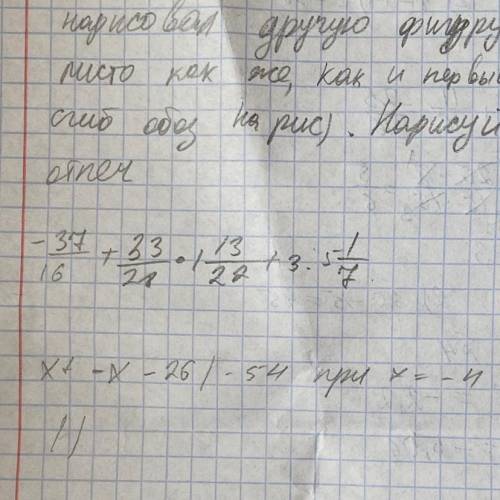 нарисовал другую фигуру
листо как же, как и первы
сгиб обоз на рис). Нарисуй
отпеч
-37/16 + 33/21 • 1 13/22 + 3 : 5 1/7
x + -x - 26 / - 54 при x = -4
11